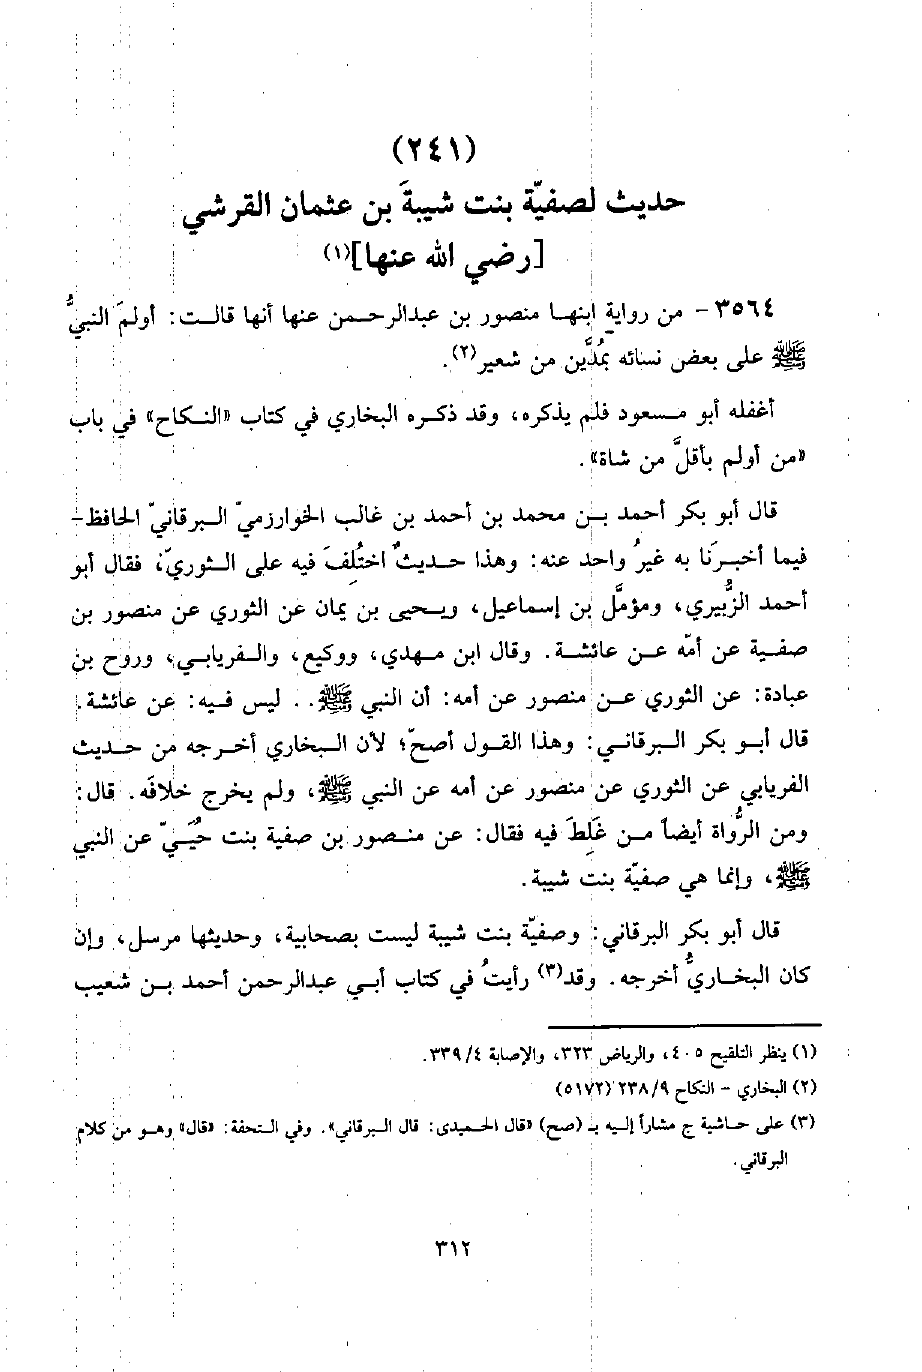 (٢٤١)
حديث لصفيّة بنت شيبةَ بن عثمان القرشي
[رضي الله عنها](١)
٣٥٦٤ - من رواية ابنهـا منصور بن عبدالرحـمن عنها أنها قالـت: أولمَ النبيُّ
ﷺ على بعض نسائه بمُدَّين من شعير(٢).
أغفله أبو مـسعود فلم يذكره، وقد ذكـره البخاري في كتاب «النـكاح» في باب
«من أولم بأقلَّ من شاة».
قال أبو بكر أحمد بـن محمد بن أحمد بن غالب الخوارزميّ البـرقانيّ الحافظ-
فيما أخبـرَنا به غيرُ واحد عنه: وهذا حـديثٌ اختُلِفَ فيه على الـثوريّ، فقال أبو
أحمد الزُّبيري، ومؤمَّل بن إسماعيل، ويـحيى بن يمان عن الثوري عن منصور بن
صفـية عن أمّه عـن عائشـة. وقال ابن مـهدي، ووكيع، والـفريابـي، وروح بن
عبادة: عن الثوري عـن منصور عن أمه: أن النبي ﷺ.. ليس فـيه: عن عائشة.
قال أبـو بكر الـبرقانـي: وهـذا القـول أصحّ؛ لأن الـبخاري أخـرجه من حـديث
الفريابي عن الثوري عن منصور عن أمه عن النبي ﷺ، ولم يخرج خلافَه. قال:
ومن الرُّواة أيضاً مـن غَلِطَ فيه فقال: عن منـصور بن صفية بنت حُيَـيّ عن النبي
ﷺ، وإنما هي صفيّة بنت شيبة.
قال أبو بكر البرقاني: وصفيّة بنت شيبة ليست بصحابية، وحديثها مرسل، وإن
كان البخـاريُّ أخرجه. وقد(٣) رأيتُ في كتاب أبـي عبدالرحمن أحمد بـن شعيب
(١) ينظر التلقيح ٤٠٥، والرياض ٣٢٣، والإصابة ٣٣٩/٤.
(٢) البخاري - النكاح ٢٣٨/٩ (٥١٧٢)
(٣) على حـاشية ج مشاراً إليه بـ (صح) «قال الحـميدى: قال الـبرقاني». وفي الـتحفة: «قال» وهـو من كلام
البرقاني.
٣١٢